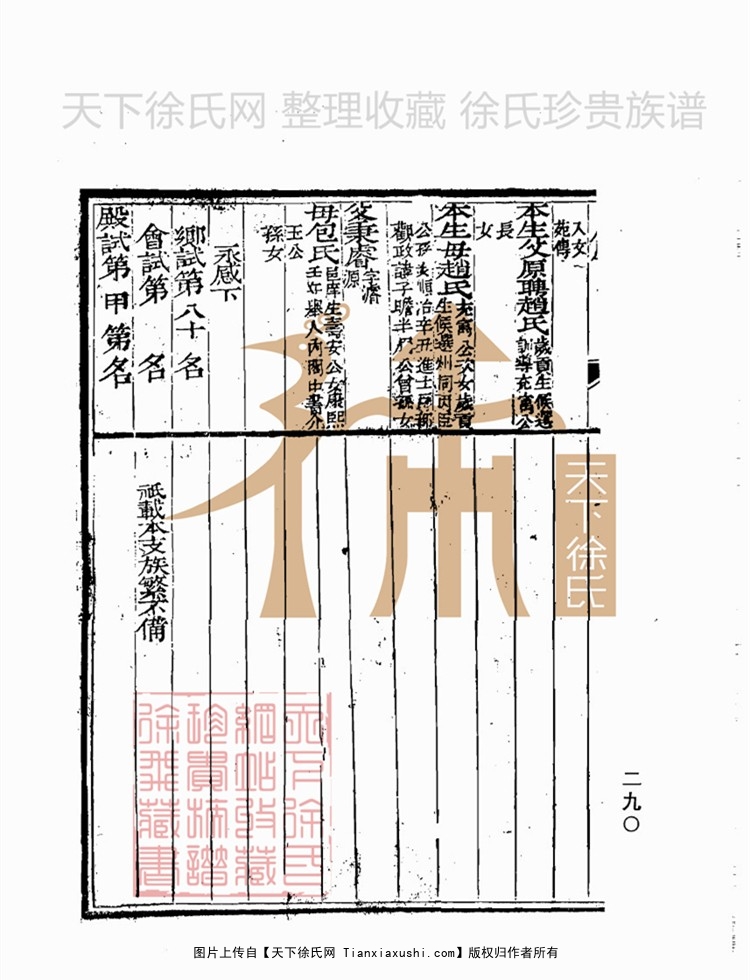 天下徐氏网 整理收藏 徐氏珍贵族谱
入女
苑傳
本生父原聘趙氏歲貢生候選
訓導充寓公
長
女
本生母趙氏充寓公次女歲貢
生候選州同丙臣
公孫女順治辛丑進士
觀政諱子瞻半公曾孫女
父秉睿字濬
源
母包氏邑庠生壽安公女康熙
壬午舉人內閣中書介
玉公
孫女
永感下
鄉試第八十名
會試第 名
殿試第 甲第 名
祇載本支族繁不備
天下徐氏
二九〇
天下徐氏
網站收藏
珍貴族譜
徐氏藏書
图片上传自【天下徐氏网 Tianxiaxushi.com】版权归作者所有